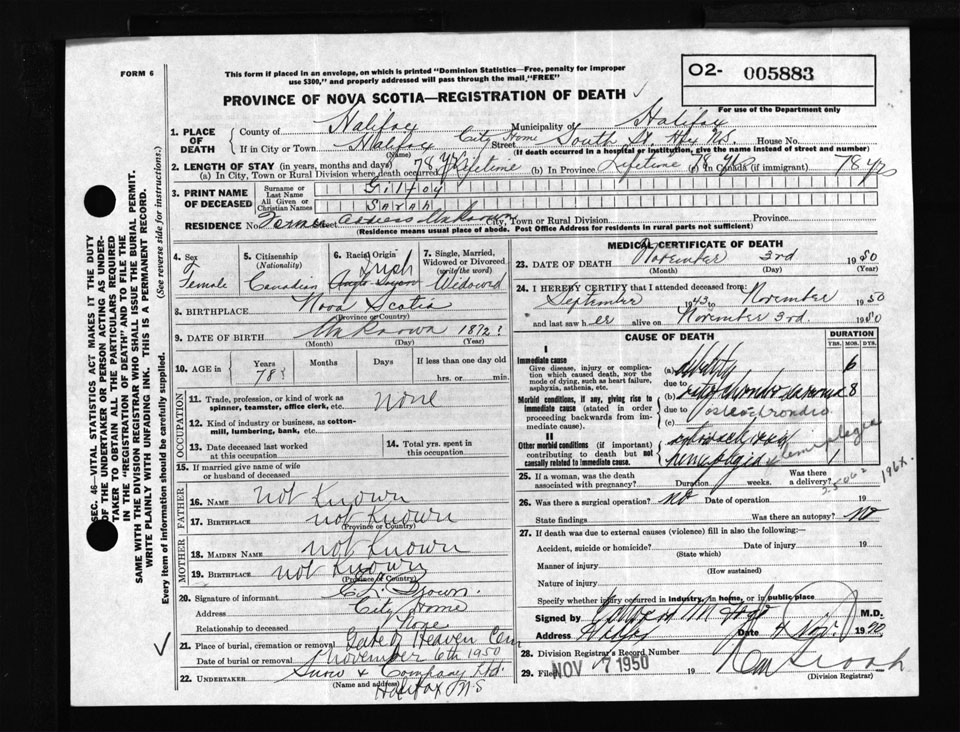 FORM 6
This form if placed in an envelope, on which is printed "Dominion Statistics—Free, penalty for improper
use $300," and properly addressed will pass through the mail, "FREE"
O2- 005883
For use of the Department only
PROVINCE OF NOVA SCOTIA—REGISTRATION OF DEATH
1. PLACE OF DEATH
County of Halifax Municipality of Halifax
If in City or Town Halifax City Home Street South St. Hfx NS. House No.
(Name) (If death occurred in a hospital or institution, give the name instead of street and number)
2. LENGTH OF STAY (in years, months and days)
(a) In City, Town or Rural Division where death occurred 78 yrs lifetime (b) In Province lifetime 78 yrs (c) In Canada (if immigrant) 78 yrs
3. PRINT NAME OF DECEASED
Surname or Last Name Gilfoy
All Given or Christian Names Sarah
RESIDENCE No. Former address Unknown City, Town or Rural Division Province
(Residence means usual place of abode. Post Office Address for residents in rural parts not sufficient)
4. Sex Female
5. Citizenship (Nationality) Canadian
6. Racial Origin Irish Anglo Saxon
7. Single, Married, Widowed or Divorced (write the word) Widowed
8. BIRTHPLACE Nova Scotia
(Province or Country)
9. DATE OF BIRTH Unknown 1872?
(Month) (Day) (Year)
10. AGE in Years 78 Months Days If less than one day old hrs. or min.
OCCUPATION
11. Trade, profession, or kind of work as spinner, teamster, office clerk, etc. none
12. Kind of industry or business, as cotton-mill, lumbering, bank, etc.
13. Date deceased last worked at this occupation
14. Total yrs. spent in this occupation
15. If married give name of wife or husband of deceased
FATHER
16. NAME not known
17. BIRTHPLACE not known
(Province or Country)
MOTHER
18. MAIDEN NAME not known
19. BIRTHPLACE not known
(Province or Country)
20. Signature of informant
Address City Home
Relationship to deceased None
21. Place of burial, cremation or removal Gate of Heaven Cem
Date of burial or removal November 6th 1950
22. UNDERTAKER Snow & Company Ltd.
(Name and address) Halifax N.S
MEDICAL CERTIFICATE OF DEATH
23. DATE OF DEATH November 3rd 1950
(Month) (Day) (Year)
24. I HEREBY CERTIFY that I attended deceased from:
September 1943 to November 1950
and last saw her alive on November 3rd. 1950
CAUSE OF DEATH
DURATION
YRS. MOS. DYS.
I
Immediate cause
Give disease, injury or complication which caused death, NOT the mode of dying, such as heart failure, asphyxia, asthenia, etc.
(a) 6
due to
(b) 8
Morbid conditions, if any, giving rise to immediate cause (stated in order proceeding backwards from immediate cause).
due to
(c)
II
Other morbid conditions (if important) contributing to death but not causally related to immediate cause.
hemiplegia hemiplegia
25. If a woman, was the death associated with pregnancy? Duration weeks. Was there a delivery?
26. Was there a surgical operation? no Date of operation 19
State findings Was there an autopsy? no
27. If death was due to external causes (violence) fill in also the following:—
Accident, suicide or homicide? Date of injury 19
(State which)
Manner of injury
(How sustained)
Nature of injury
Specify whether injury occurred in industry, in home, or in public place
Signed by M.D.
Address Date 4 Nov. 1950
28. Division Registrar's Record Number
29. Filed NOV 7 1950 19
(Division Registrar)
SEC. 46—VITAL STATISTICS ACT MAKES IT THE DUTY
OF THE UNDERTAKER OR PERSON ACTING AS UNDERTAKER TO OBTAIN ALL THE PARTICULARS REQUIRED
IN THE "REGISTRATION OF DEATH" AND TO FILE THE
SAME WITH THE DIVISION REGISTRAR WHO SHALL ISSUE THE BURIAL PERMIT.
WRITE PLAINLY WITH UNFADING INK. THIS IS A PERMANENT RECORD.
Every item of information should be carefully supplied. (See reverse side for instructions.)